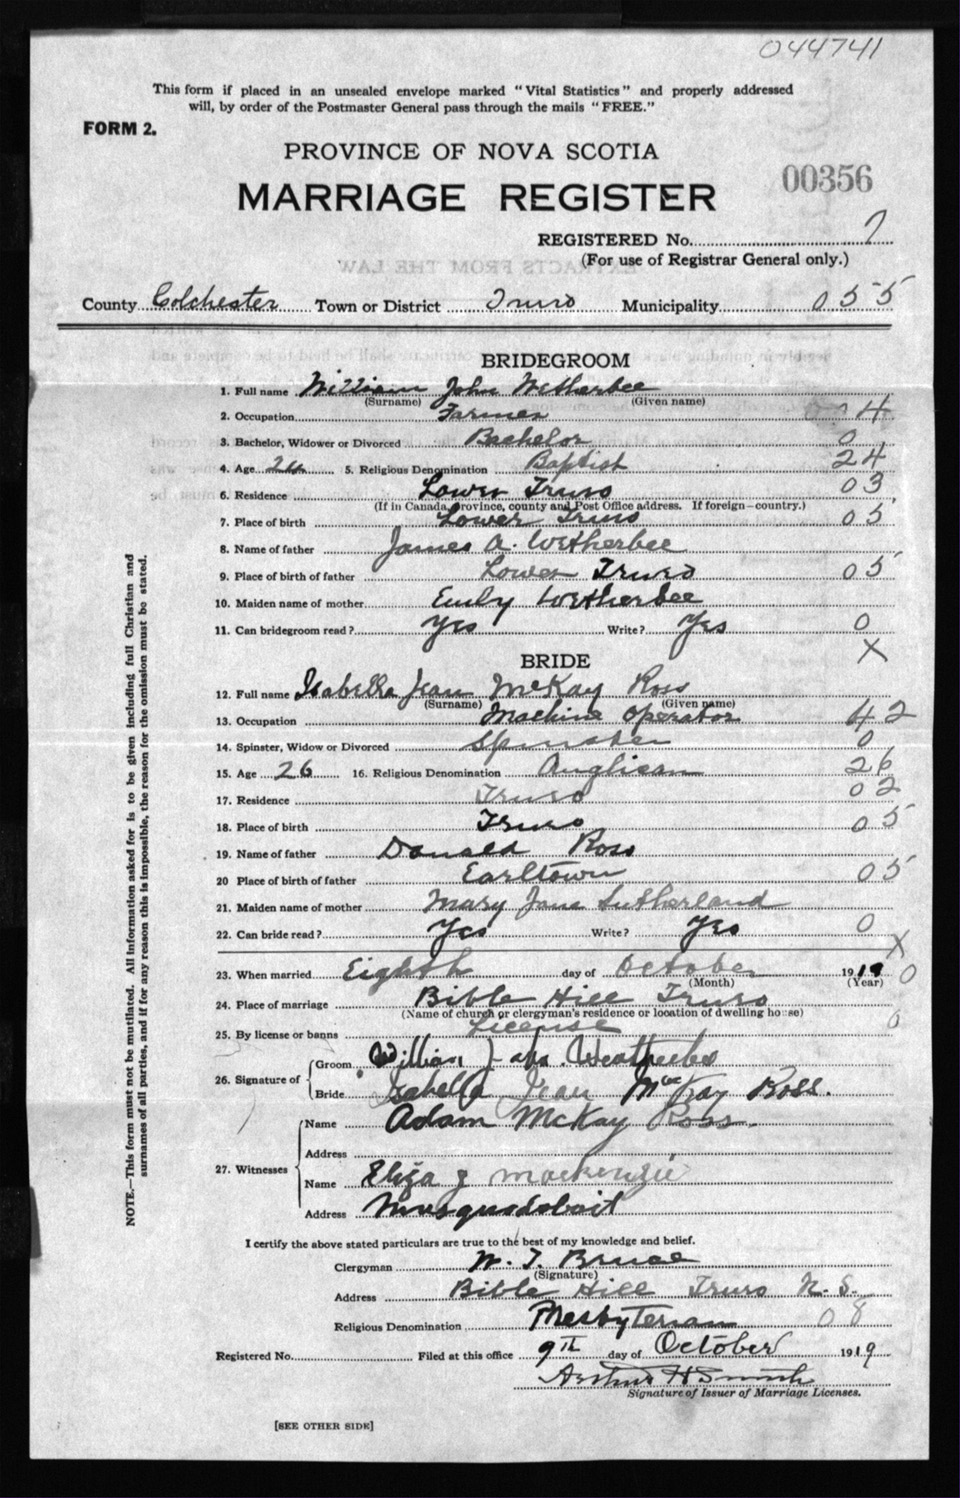 044741
This form if placed in an unsealed envelope marked "Vital Statistics" and properly addressed
will, by order of the Postmaster General pass through the mails "FREE."
FORM 2.
PROVINCE OF NOVA SCOTIA
00356
MARRIAGE REGISTER
REGISTERED No. 7
(For use of Registrar General only.)
EXTRACTS FROM THE LAW
County Colchester Town or District Truro Municipality 055
BRIDEGROOM
1. Full name William John Wetherbee
(Surname) (Given name)
2. Occupation Farmer 4
3. Bachelor, Widower or Divorced Bachelor 0
4. Age 24 5. Religious Denomination Baptist 24
6. Residence Lower Truro 03
(If in Canada, province, county and Post Office address. If foreign—country.)
7. Place of birth Lower Truro 05
8. Name of father James A. Wetherbee
9. Place of birth of father Lower Truro 05
10. Maiden name of mother Emily Wetherbee
11. Can bridegroom read? Yes Write? Yes 0
X
BRIDE
12. Full name Isabella Jean McKay Ross
(Surname) (Given name)
13. Occupation Machine operator 42
14. Spinster, Widow or Divorced Spinster 0
15. Age 26 16. Religious Denomination Anglican 26
17. Residence Truro 02
18. Place of birth Truro 05
19. Name of father Donald Ross
20 Place of birth of father Earltown 05
21. Maiden name of mother Mary Jane Sutherland
22. Can bride read? Yes Write? Yes 0
X
23. When married Eighth day of October 1919 0
(Month) (Year)
24. Place of marriage Bible Hill Truro
(Name of church or clergyman's residence or location of dwelling house) 0
25. By license or banns License
26. Signature of Groom William J
Bride Isabella Jean McKay Ross.
27. Witnesses Name Adam McKay Ross.
Address
Name Eliza J Mackenzie
Address Musquodoboit
I certify the above stated particulars are true to the best of my knowledge and belief.
Clergyman W. T. Bruce
(Signature)
Address Bible Hill Truro N.S.
Religious Denomination Presbyterian 08
Registered No. Filed at this office 9th day of October 1919
Arthur H Smith
Signature of Issuer of Marriage Licenses.
[SEE OTHER SIDE]
NOTE.—This form must not be mutilated. All information asked for is to be given including full Christian and
surnames of all parties, and if for any reason this is impossible, the reason for the omission must be stated.